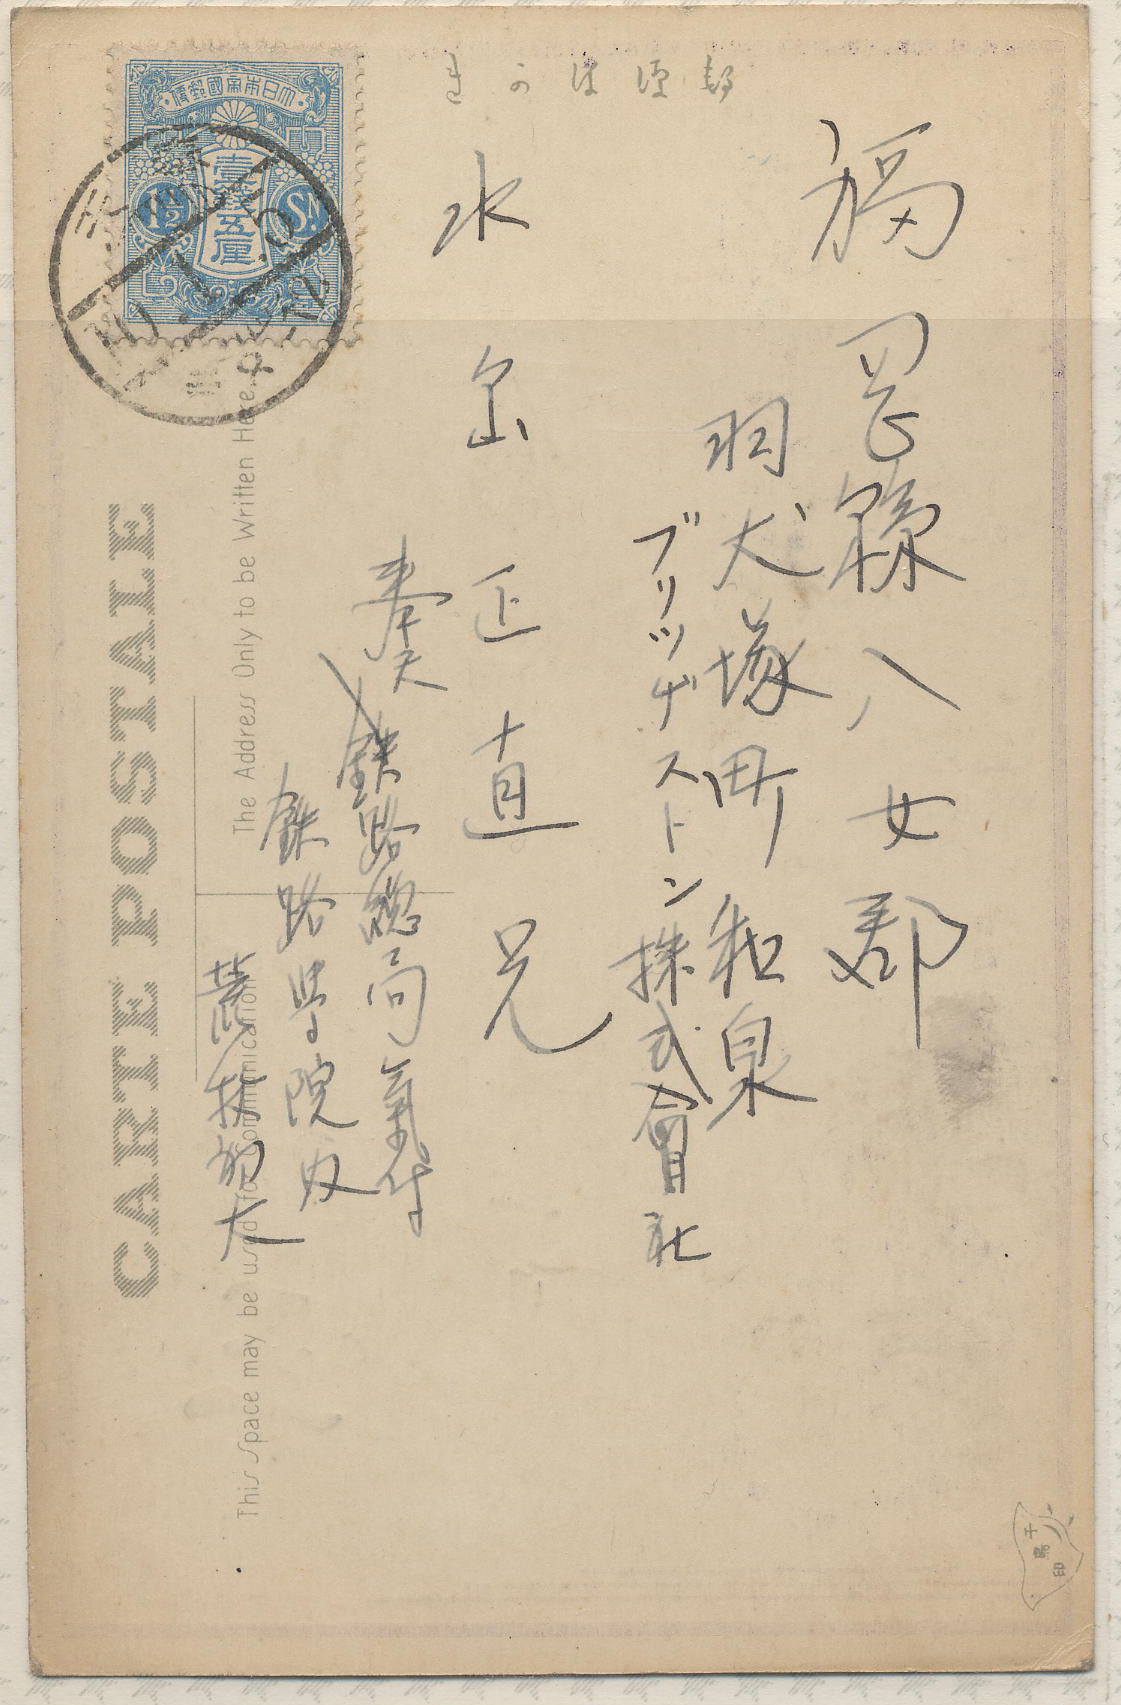 きかは便郵
福岡縣八女郡
羽犬塚町和泉
ブリッヂストン株式會社
水島正直兄
奉天鉄路總局氣付
鉄路学院内
大日本帝國郵便
壹錢五厘
1½ S.
CARTE POSTALE
The Address Only to be Written Here.
This space may be used for Communication
千鳥印